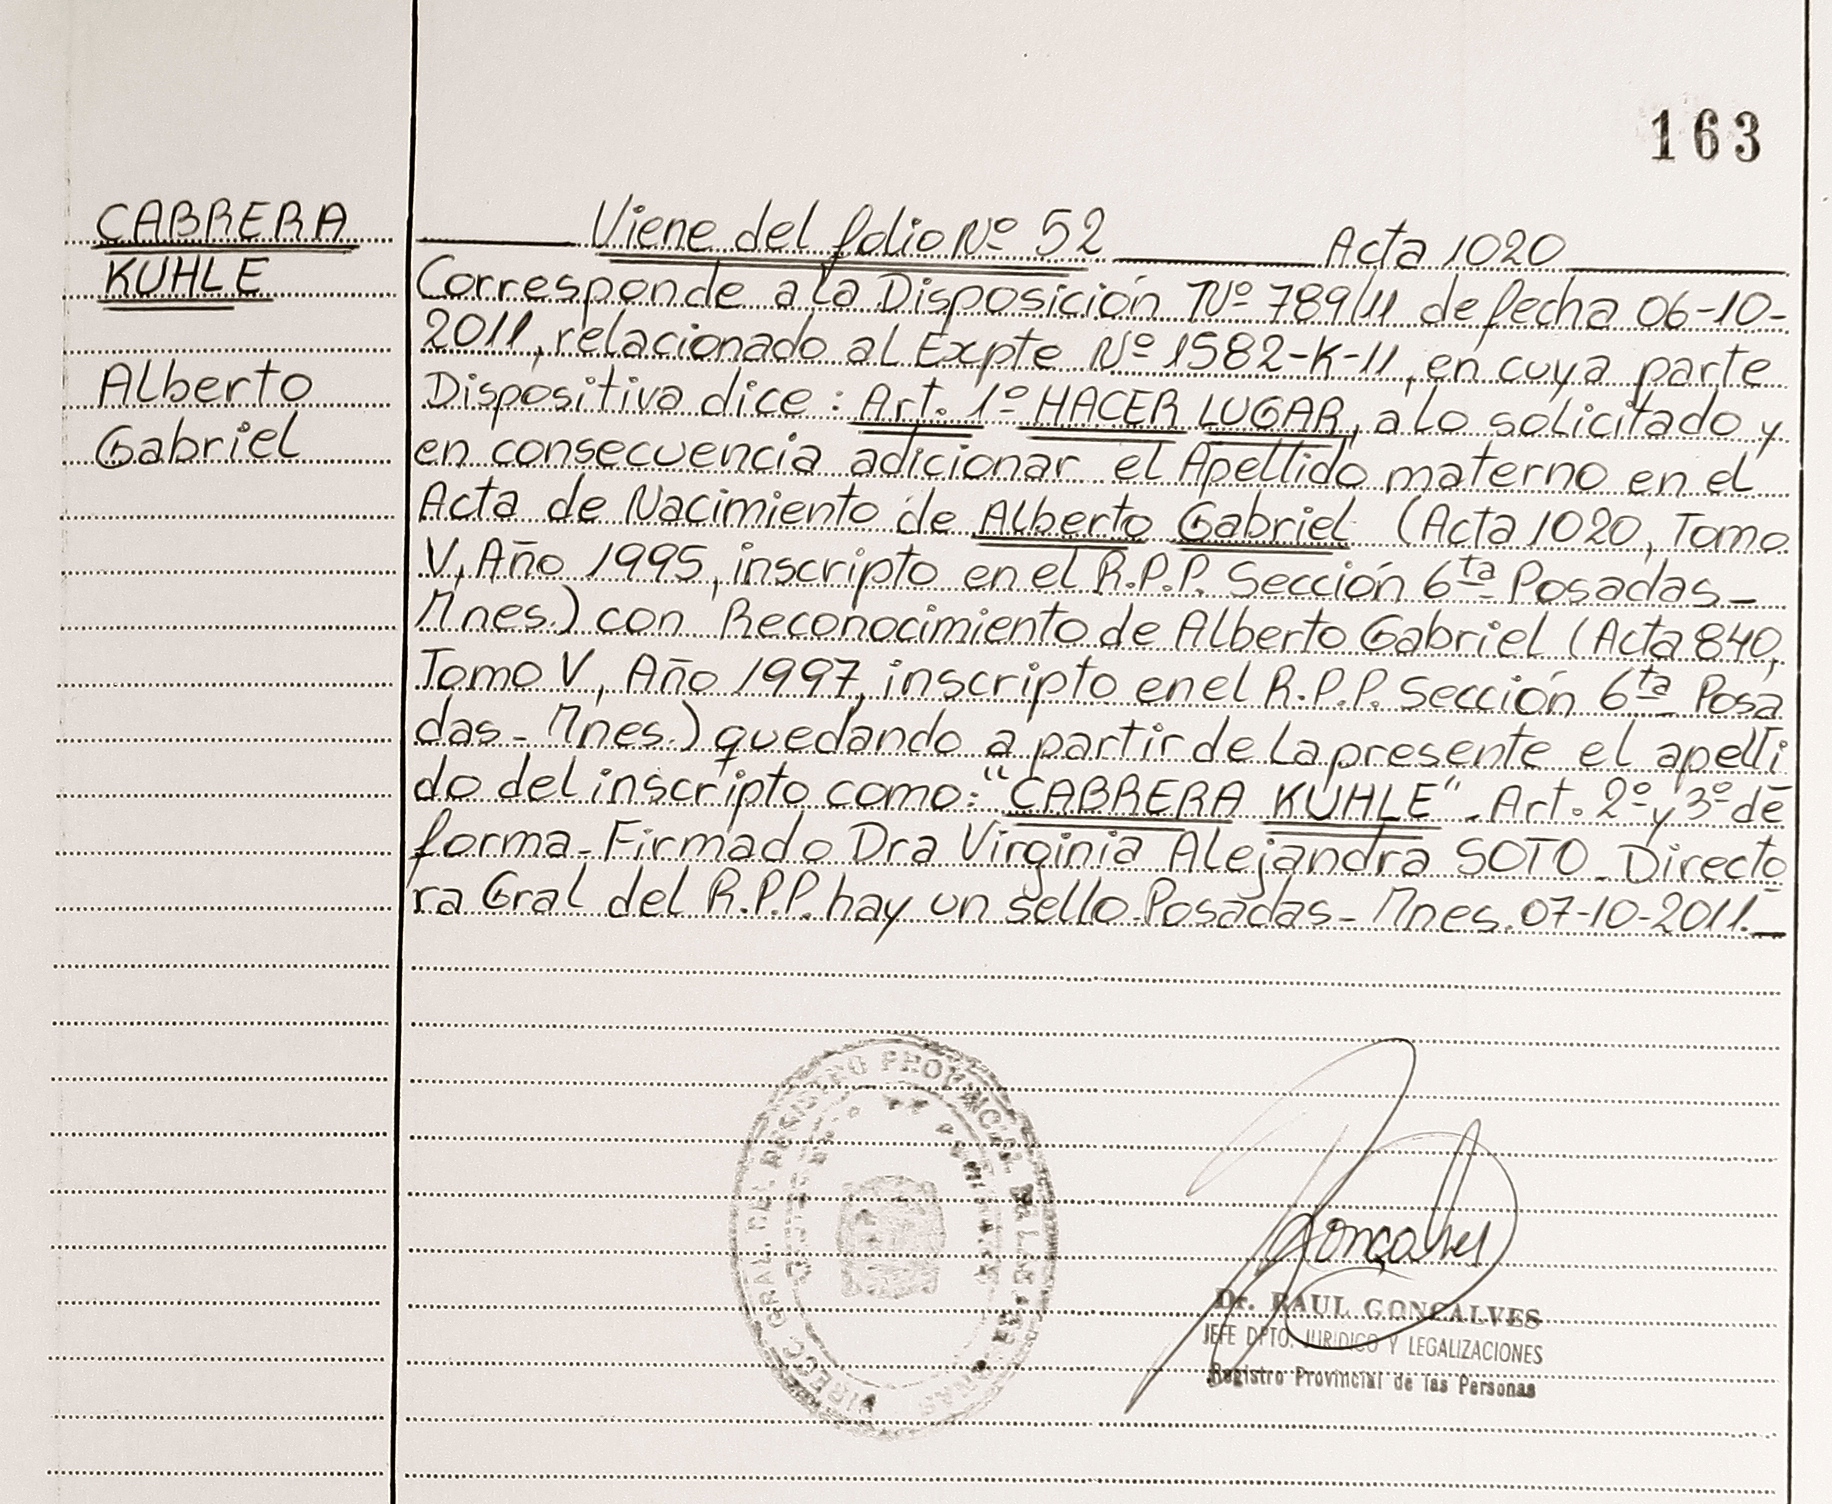 163
CABRERA
KUHLE
Alberto
Gabriel
Viene del folio Nº 52 Acta 1020
Corresponde a la Disposición Nº 789/11 de fecha 06-10-
2011, relacionado al Expte Nº 1582-K-11, en cuya parte
Dispositiva dice: Art. 1º HACER LUGAR, a lo solicitado y
en consecuencia adicionar el Apellido materno en el
Acta de Nacimiento de Alberto Gabriel (Acta 1020, Tomo
V, Año 1995, inscripto en el R.P.P. Sección 6ta Posadas-
Mnes.) con Reconocimiento de Alberto Gabriel (Acta 840,
Tomo V, Año 1997, inscripto en el R.P.P. Sección 6ta Posa
das- Mnes.) quedando a partir de la presente el apelli
do del inscripto como: "CABRERA KUHLE"- Art. 2º y 3º de
forma- Firmado Dra Virginia Alejandra SOTO- Directo
ra Gral del R.P.P. hay un sello- Posadas- Mnes. 07-10-2011.-
DIRECC. GRAL. DEL REGISTRO PROVINCIAL DE LAS
Gonçalves
Dr. RAUL GONCALVES
JEFE DPTO. JURIDICO Y LEGALIZACIONES
Registro Provincial de las Personas